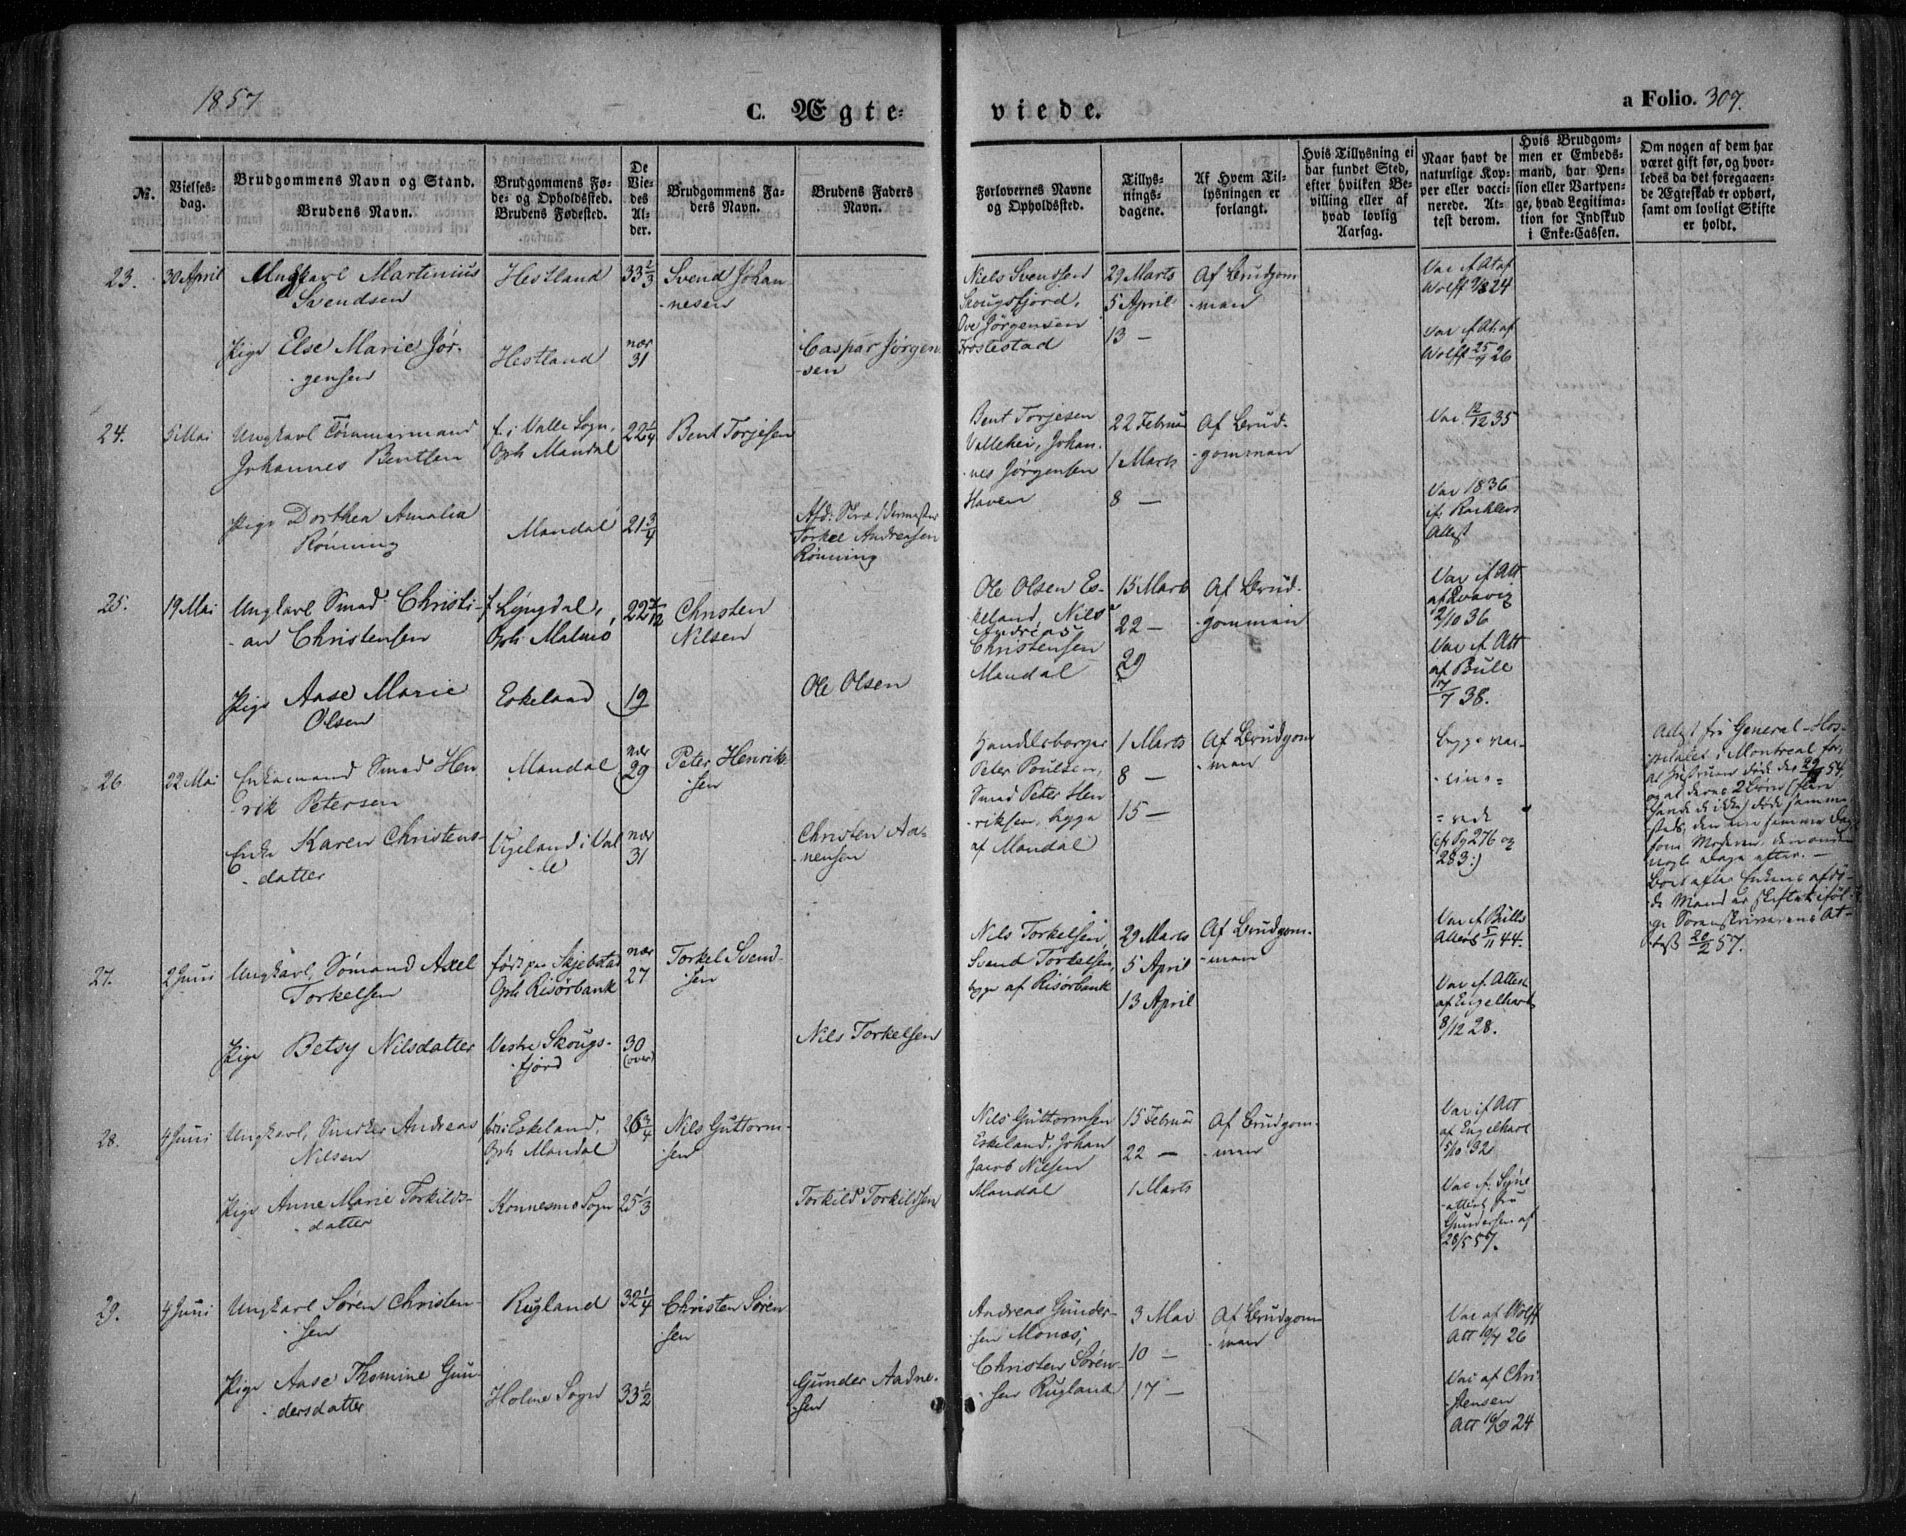 1857
C. Ægte-
viede.
a Folio. 307.
№.
Vielses-
dag.
Brudgommens Navn og Stand.
Brudens Navn.
Brudgommens Fø-
de- og Opholdssted.
Brudens Fødested.
De
Vie-
des
Al-
der.
Brudgommens Fa-
ders Navn.
Brudens Faders
Navn.
Forlovernes Navne
og Opholdssted.
Tillys-
nings-
dagene.
Af Hvem Til-
lysningen er
forlangt.
Hvis Tillysning ei
har fundet Sted,
efter hvilken Be-
villing eller af
hvad lovlig
Aarsag.
Naar havt de
naturlige Kop-
per eller vacci-
nerede. At-
test derom.
Hvis Brudgom-
men er Embeds-
mand, har Pen-
sion eller Vartpen-
ge, hvad Legitima-
tion for Indskud
i Enke-Cassen.
Om nogen af dem har
været gift før, og hvor-
ledes da det foregaaen-
de Ægteskab er ophørt,
samt om lovligt Skifte
er holdt.
23. 30 April Ungkarl Martinius
Svendsen
Hestland
33 2/3
Svend Johan
nesen
Niels Svendsen
Skougsfjord,
Ove Jørgensen
Frostestad
29 Marts
5 April
13 —
Af Brudgom
-man
Vac. if. At. af
Wolff 24
Pige Else Marie Jør-
gensen
Hestland
nær
31
Caspar Jørgen
-sen
Vac. if At. af
Wolff 25/ 26
24. 5 Mai Ungkarl Tömmermand
Johannes Bentsen
f. i Valle Sogn,
Oph. Mandal
22 1/4
Bent Torjesen
Bent Torjesen
Vallehei, Johan-
nes Jørgensen
Haven
22 Februar
1 Marts
8 —
Af Brud-
-gomman
Vac. 12/12 35
Pige Dorthea Amalia
Rönning
Mandal
21 3/4
Afd. Skræddermester
Torkel Andreasen
Rønning
Vac 1836
if.
Attest
25. 19 Mai Ungkarl Smed Christi-
-an Christensen
f Lyngdal,
Oph. Malmö
22 7/12
Christen
Nilsen
Ole Olsen Es-
keland, Nils
Andreas
Christensen
Mandal
15 Marts
22 —
29
Af Brud-
-gomman
Vac if Att
2/10 36
Pige Aase Marie
Olsen
Eskeland
19
Ole Olsen
Vac. if. Att
af Bull
17/7 38.
26 22 Mai Enkemand Smed Hen
-rik Petersen
Mandal
nær
29
Peter Henrik-
sen
Handelsborger
Peter Poulsen,
Smed Peter Hen
-riksen, begge
af Mandal
1 Marts
8 —
15 —
Af Brudgom
-man
begge vac-
-cine-
=rede
(cfr Pg 276 og
283:)
Attest fra General-Hos-
pitalet i Montreal for,
at Hustruen døde den 29/ 54,
og at deres 2 Børn
døde samme-
steds, den ene samme Dag
som Moderen, den anden
nogle Dage efter. —
Boet efter Enkens afdø-
de Mand er skiftet iføl-
ge Sorenskriverens At-
test 20/2 57.
Enke Karen Christens-
-datter
Vigeland i Val
-le
nær
31
Christen Aa-
-nensen
27. 2 Juni Ungkarl, Sømand Axel
Torkelsen
født paa Skjebstad
Oph Risörbank
nær
27
Torkel Svend-
sen
Nils Torkelsen,
Svend Torkelsen,
begge af Risörbank
29 Marts
5 April
13 April
Af Brudgom-
-man
Vac if Bulls
Attest 5/11 44.
Pige Betsy Nilsdatter
Vestre Skougs-
-fjord
30
(over)
Nils Torkelsen
Vac if. Attest
af Engelhart
8/12 28.
28. 4 Juni Ungkarl, Andreas
Nilsen
Eskeland,
Oph. Mandal
26 3/4
Nils Guttorm-
sen
Nils Guttormsen
Eskeland, Johan
Jacob Nilsen
Mandal
15 Februar
22 —
1 Marts
Af Brudgom-
-man
Vac if Att
af Engelhart
5/10 32
Pige Anne Marie Torkilds-
-datter
Konnesmo Sogn
25 1/3
Torkild Torkildsen
Vac if. Syne-
-attest fra
Gundersen af
28/5 57.
29. 4 Juni Ungkarl Søren Christen-
-sen
Rugland
32 1/4
Christen Sören-
sen
Andreas Gunder-
sen Monæs,
Christen Søren-
-sen Rugland
3 Mai
10 —
17 —
Af Brudgom
-man
Vac af Wolff
Att 19/7 26
Pige Aase Thomine Gun-
dersdatter
Holme Sogn
33 1/2
Gunder Aadne-
-sen
Vac af Chri-
-stensen
Att 16/9 24